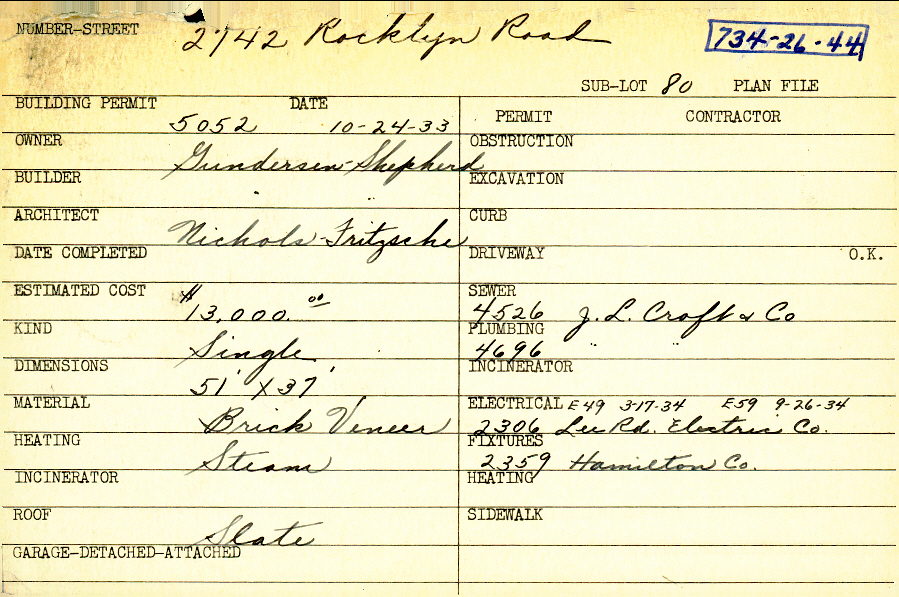 NUMBER-STREET 2742 Rocklyn Road 734-26-44
SUB-LOT 80 PLAN FILE
BUILDING PERMIT 5052 DATE 10-24-33
OWNER Gundersen-Shepherd
BUILDER
ARCHITECT Nichols-Fritzsche
DATE COMPLETED
ESTIMATED COST $13,000.00
KIND Single
DIMENSIONS 51' X 37'
MATERIAL Brick Veneer
HEATING Steam
INCINERATOR
ROOF Slate
GARAGE-DETACHED-ATTACHED
PERMIT CONTRACTOR
OBSTRUCTION
EXCAVATION
CURB
DRIVEWAY O.K.
SEWER 4526 J. L. Croft & Co
PLUMBING 4696 " "
INCINERATOR
ELECTRICAL E49 3-17-34 E59 9-26-34
2306 Lee Rd. Electric Co.
FIXTURES 2359 Hamilton Co.
HEATING
SIDEWALK